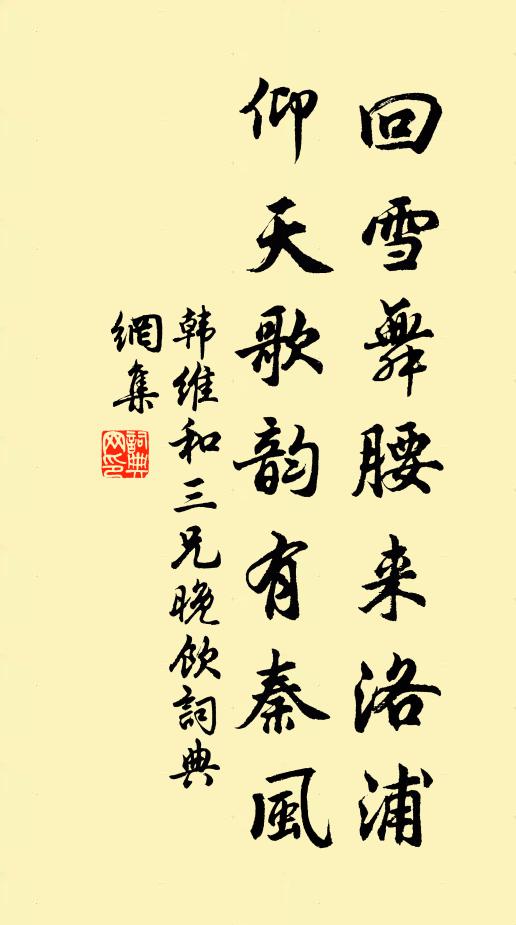 回雪舞腰来洛浦
仰天歌韵有秦風
韩维和三兄晚饮詞典
網集
詞典
网印